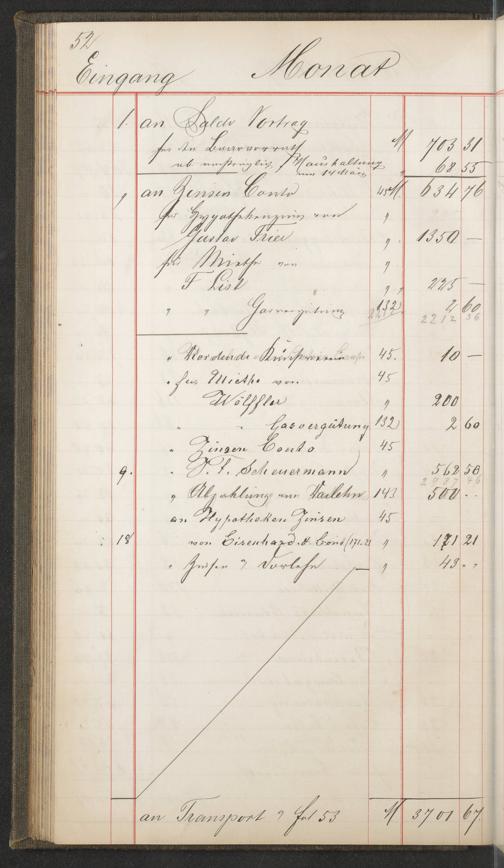 52
Eingang Monat
1. an Saldo Vortrag
für den Baarvorrath M 703 31
ab ursprüngliches Haushaltung vom 14 März 68 55
" an Zensen Conto 45 M 634 76
für Hypothekenzins von "
Gustav Trier " 1350 —
für Miethe von "
F List " " 225 —
" " Gasvergütung 132 2 60
2212 36
" Dividende 45. 10 —
" für Miethe von 45
Wölffler " 200
" " Gasvergütung 132 2 60
" Zinsen Conto 45
9. " J. F. Scheuermann " 562 50
2987 46
" Abzahlung am Darlehn 143 500 . .
an Hypotheken Zinsen 45
18 von Eisenhard & Cons (171.21 " 171 21
" Zinsen Darlehn " 43 . .
an Transport fol 53 M 3701 67